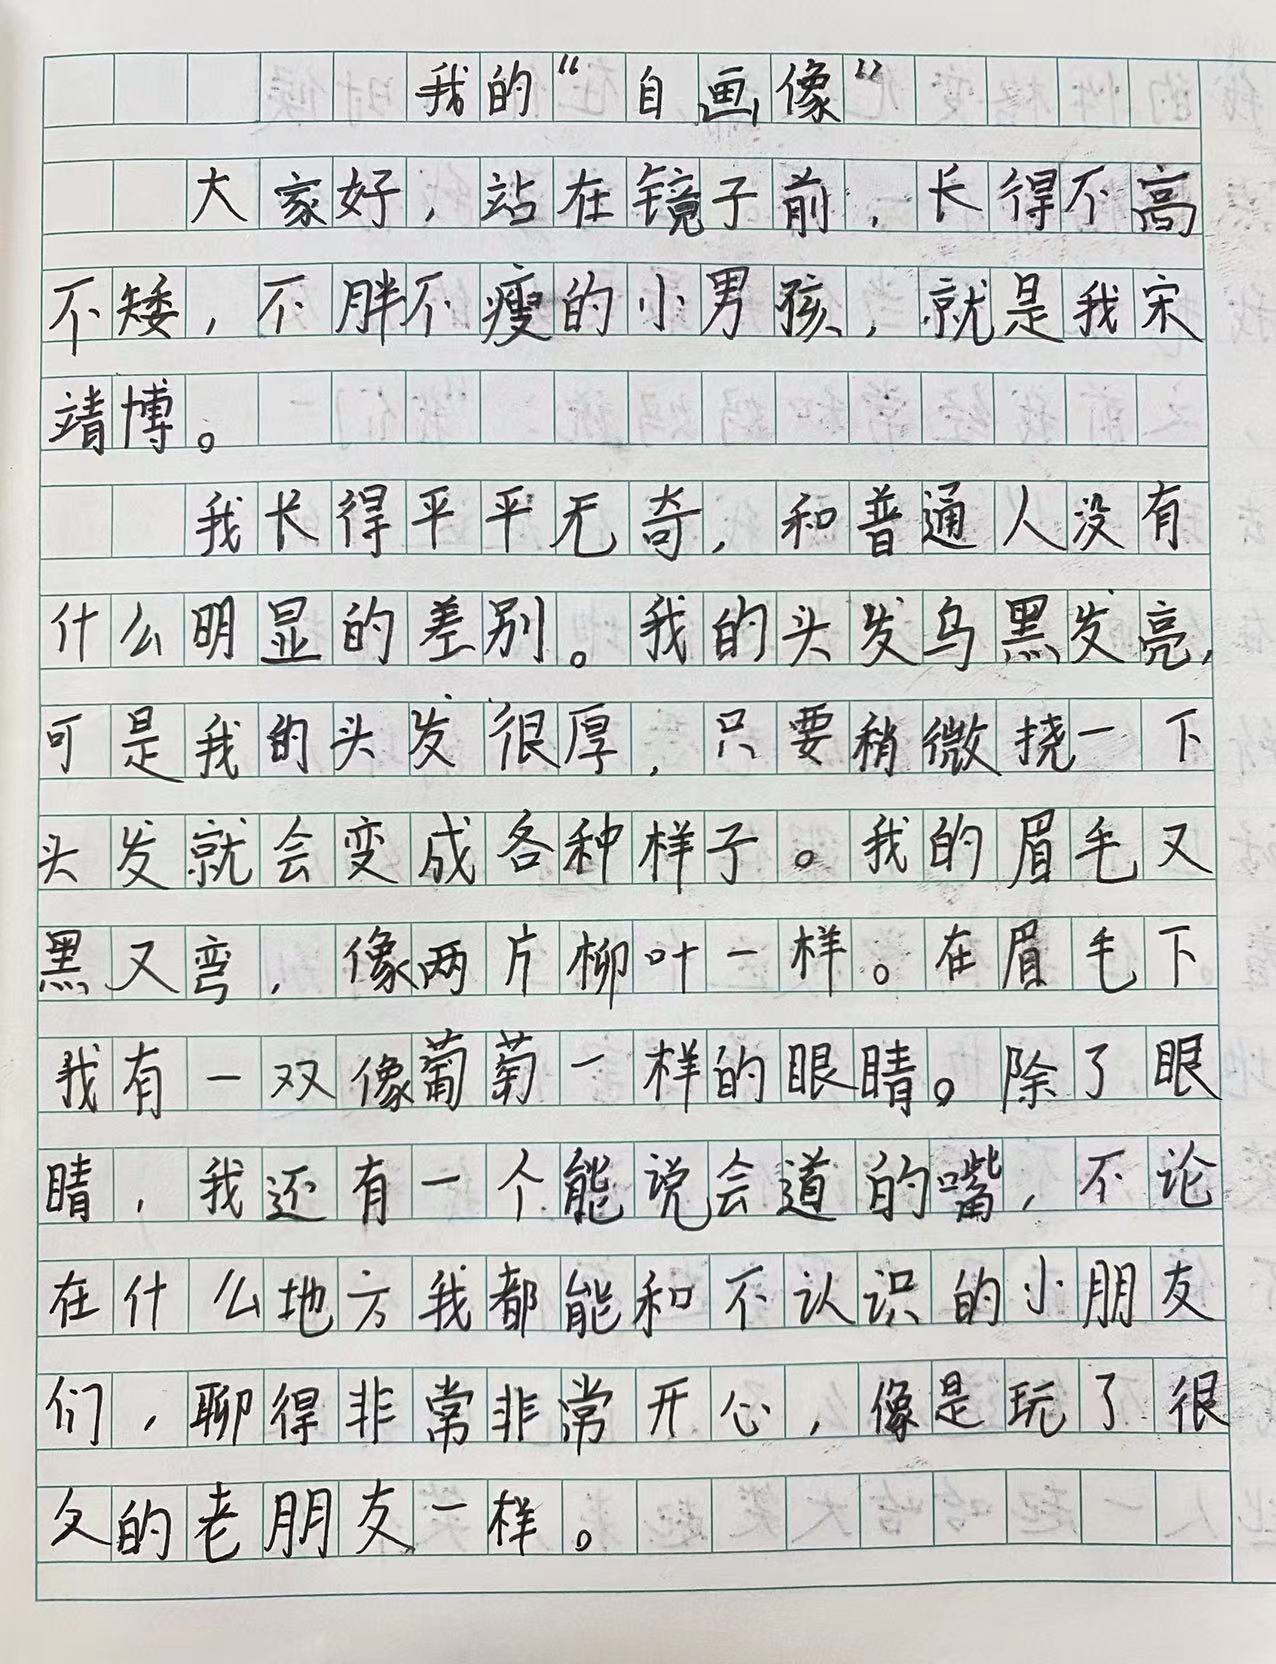 我的“自画像”
大家好，站在镜子前，长得不高
不矮，不胖不瘦的小男孩，就是我宋
靖博。
我长得平平无奇，和普通人没有
什么明显的差别。我的头发乌黑发亮，
可是我的头发很厚，只要稍微挠一下
头发就会变成各种样子。我的眉毛又
黑又弯，像两片柳叶一样。在眉毛下
我有一双像葡萄一样的眼睛。除了眼
睛，我还有一个能说会道的嘴，不论
在什么地方我都能和不认识的小朋友
们，聊得非常非常开心，像是玩了很
久的老朋友一样。